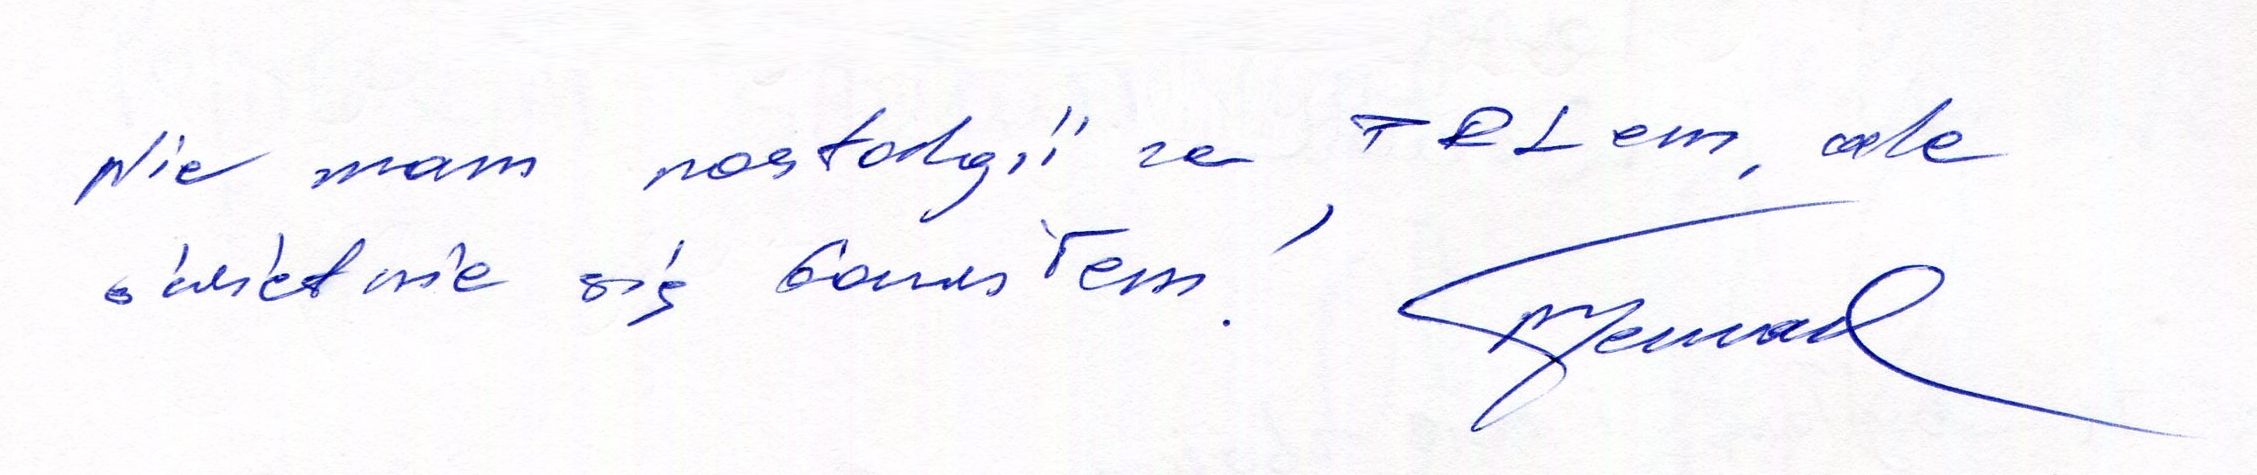 Nie mam nostalgii za PRLem, ale
świetnie się bawiłem!